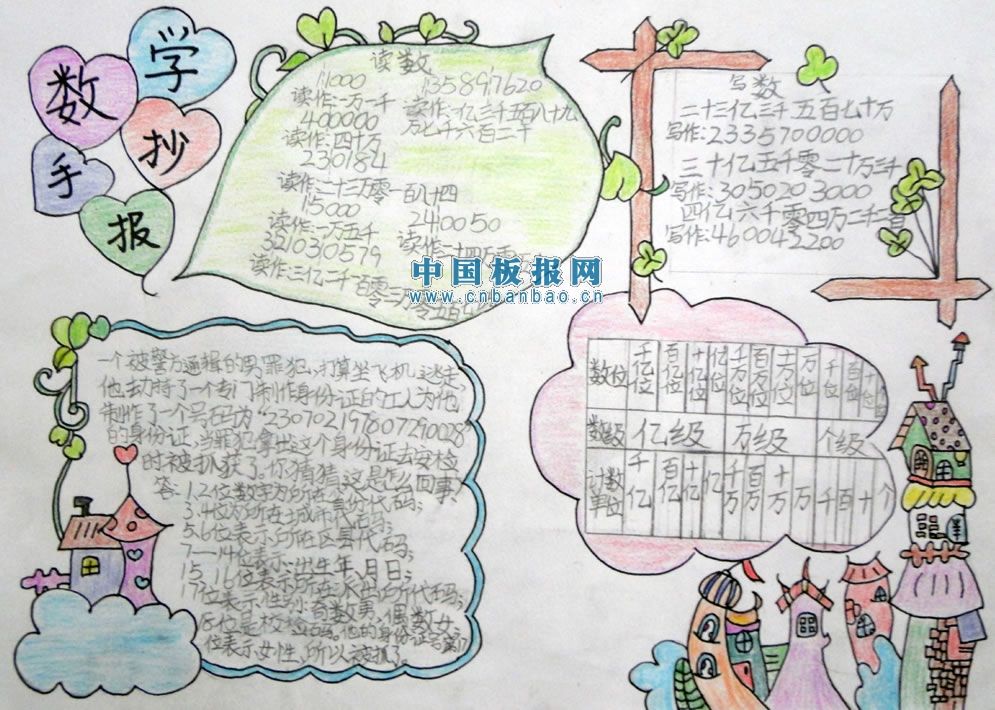 数学
手抄
报
读数
11000
读作:一万一千
400000
读作:四十万
230184
读作:二十三万零一百八十四
15000
读作:一万五千
3210310579
135897620
读作:一亿三千五百八十九
万七千六百二十
2410050
中国板报网
www.cnbanbao.cn
写数
二十三亿三千五百七十万
写作:2335700000
三十亿五千零二十万三千
写作:3050203000
四亿六千零四万二千二百
写作:460042200
一个被警方通辑的男罪犯,打算坐飞机逃走,
他去劫持了一个专门制作身份证的工人为他
制作了一个号码为“230702197807290028”
的身份证,当罪犯拿出这个身份证去安检
时被抓获了。你猜猜,这是怎么回事?
答:1.2位数字为所在省份代码;
3.4位为所在城市代码;
5.6位表示所在区县代码;
7—14位表示:出生年、月、日;
15、16位表示所在派出所代码;
17位表示性别:奇数男,偶数女;
18位是校验码。他的身份证号第17
位表示女性,所以被抓了。
数位 千亿位 百亿位 十亿位 亿位 千万位 百万位 十万位 万位 千位 百位 十位
数级 亿级 万级 个级
计数单位 千亿 百亿 十亿 亿 千万 百万 十万 万 千 百 十 个